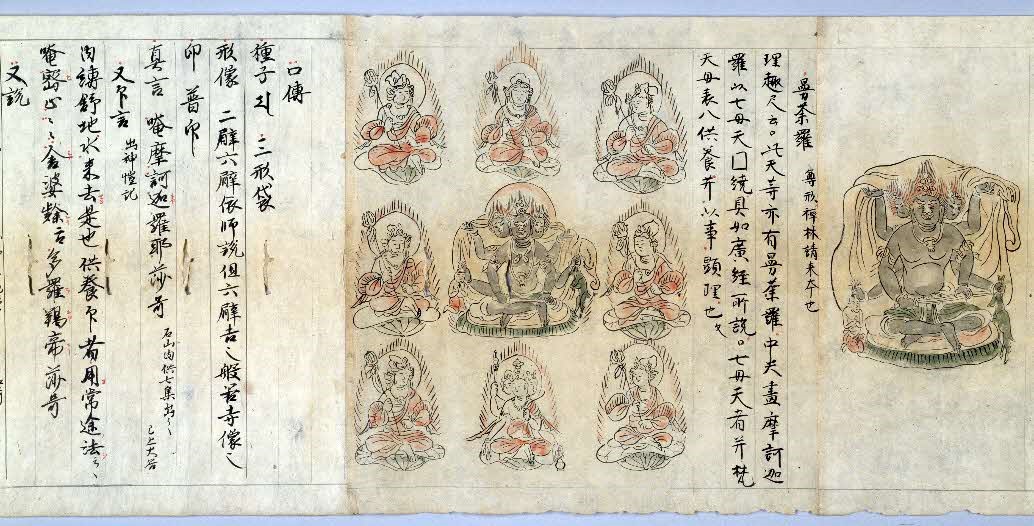 曼荼羅　尊形禅林請来本也
理趣尺云。此天等亦有曼荼羅中央畫摩訶迦
羅以七母天囲繞具如廣経所説。七母天者并梵
天母表八供養并以事顕理也文
口傳
種子　三形袋
形像　二臂六臂依師説但六臂吉〻般若寺像〻
印　普印
真言　唵摩訶迦羅耶莎呵
又印言　出神愷記
内縛舒地水来去是也供養印者用常途法云〻
唵蜜止〻舎婆 多羅羯帝莎呵
又説